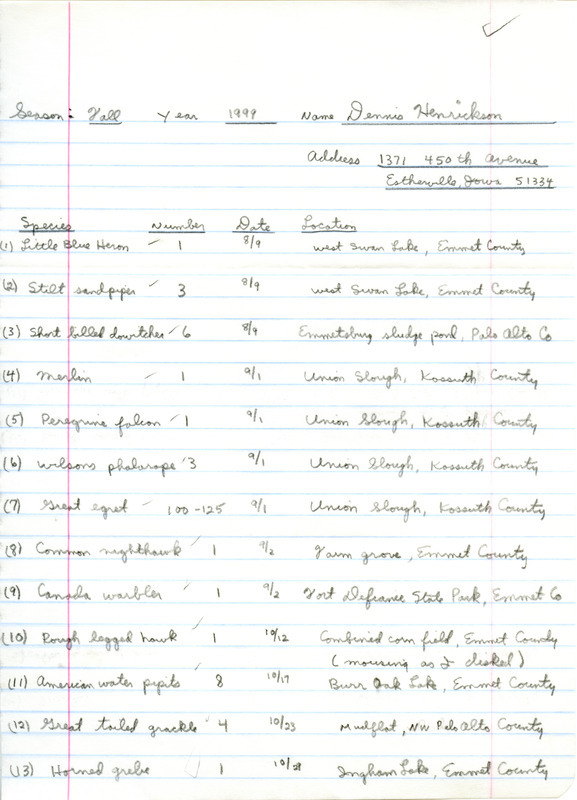 Season: Fall Year 1999 Name Dennis Henrickson
Address 1371 450th avenue
Estherville, Iowa 51334
Species Number Date Location
(1) Little Blue Heron 1 8/9 West Swan Lake, Emmet County
(2) Stilt sandpiper 3 8/9 West Swan Lake, Emmet County
(3) Short billed dowitcher 6 8/9 Emmetsburg sludge pond, Palo Alto Co
(4) Merlin 1 9/1 Union Slough, Kossuth County
(5) Peregrine falcon 1 9/1 Union Slough, Kossuth County
(6) Wilsons phalarope 3 9/1 Union Slough, Kossuth County
(7) Great egret 100-125 9/1 Union Slough, Kossuth County
(8) Common nighthawk 1 9/2 Farm grove, Emmet County
(9) Canada warbler 1 9/2 Fort Defiance State Park, Emmet Co
(10) Rough legged hawk 1 10/12 Combined corn field, Emmet County
(mousing as I disked)
(11) American water pipits 8 10/17 Burr Oak Lake, Emmet County
(12) Great tailed grackle 4 10/23 Mudflat, NW Palo Alto County
(13) Horned grebe 1 Ingham Lake, Emmet County